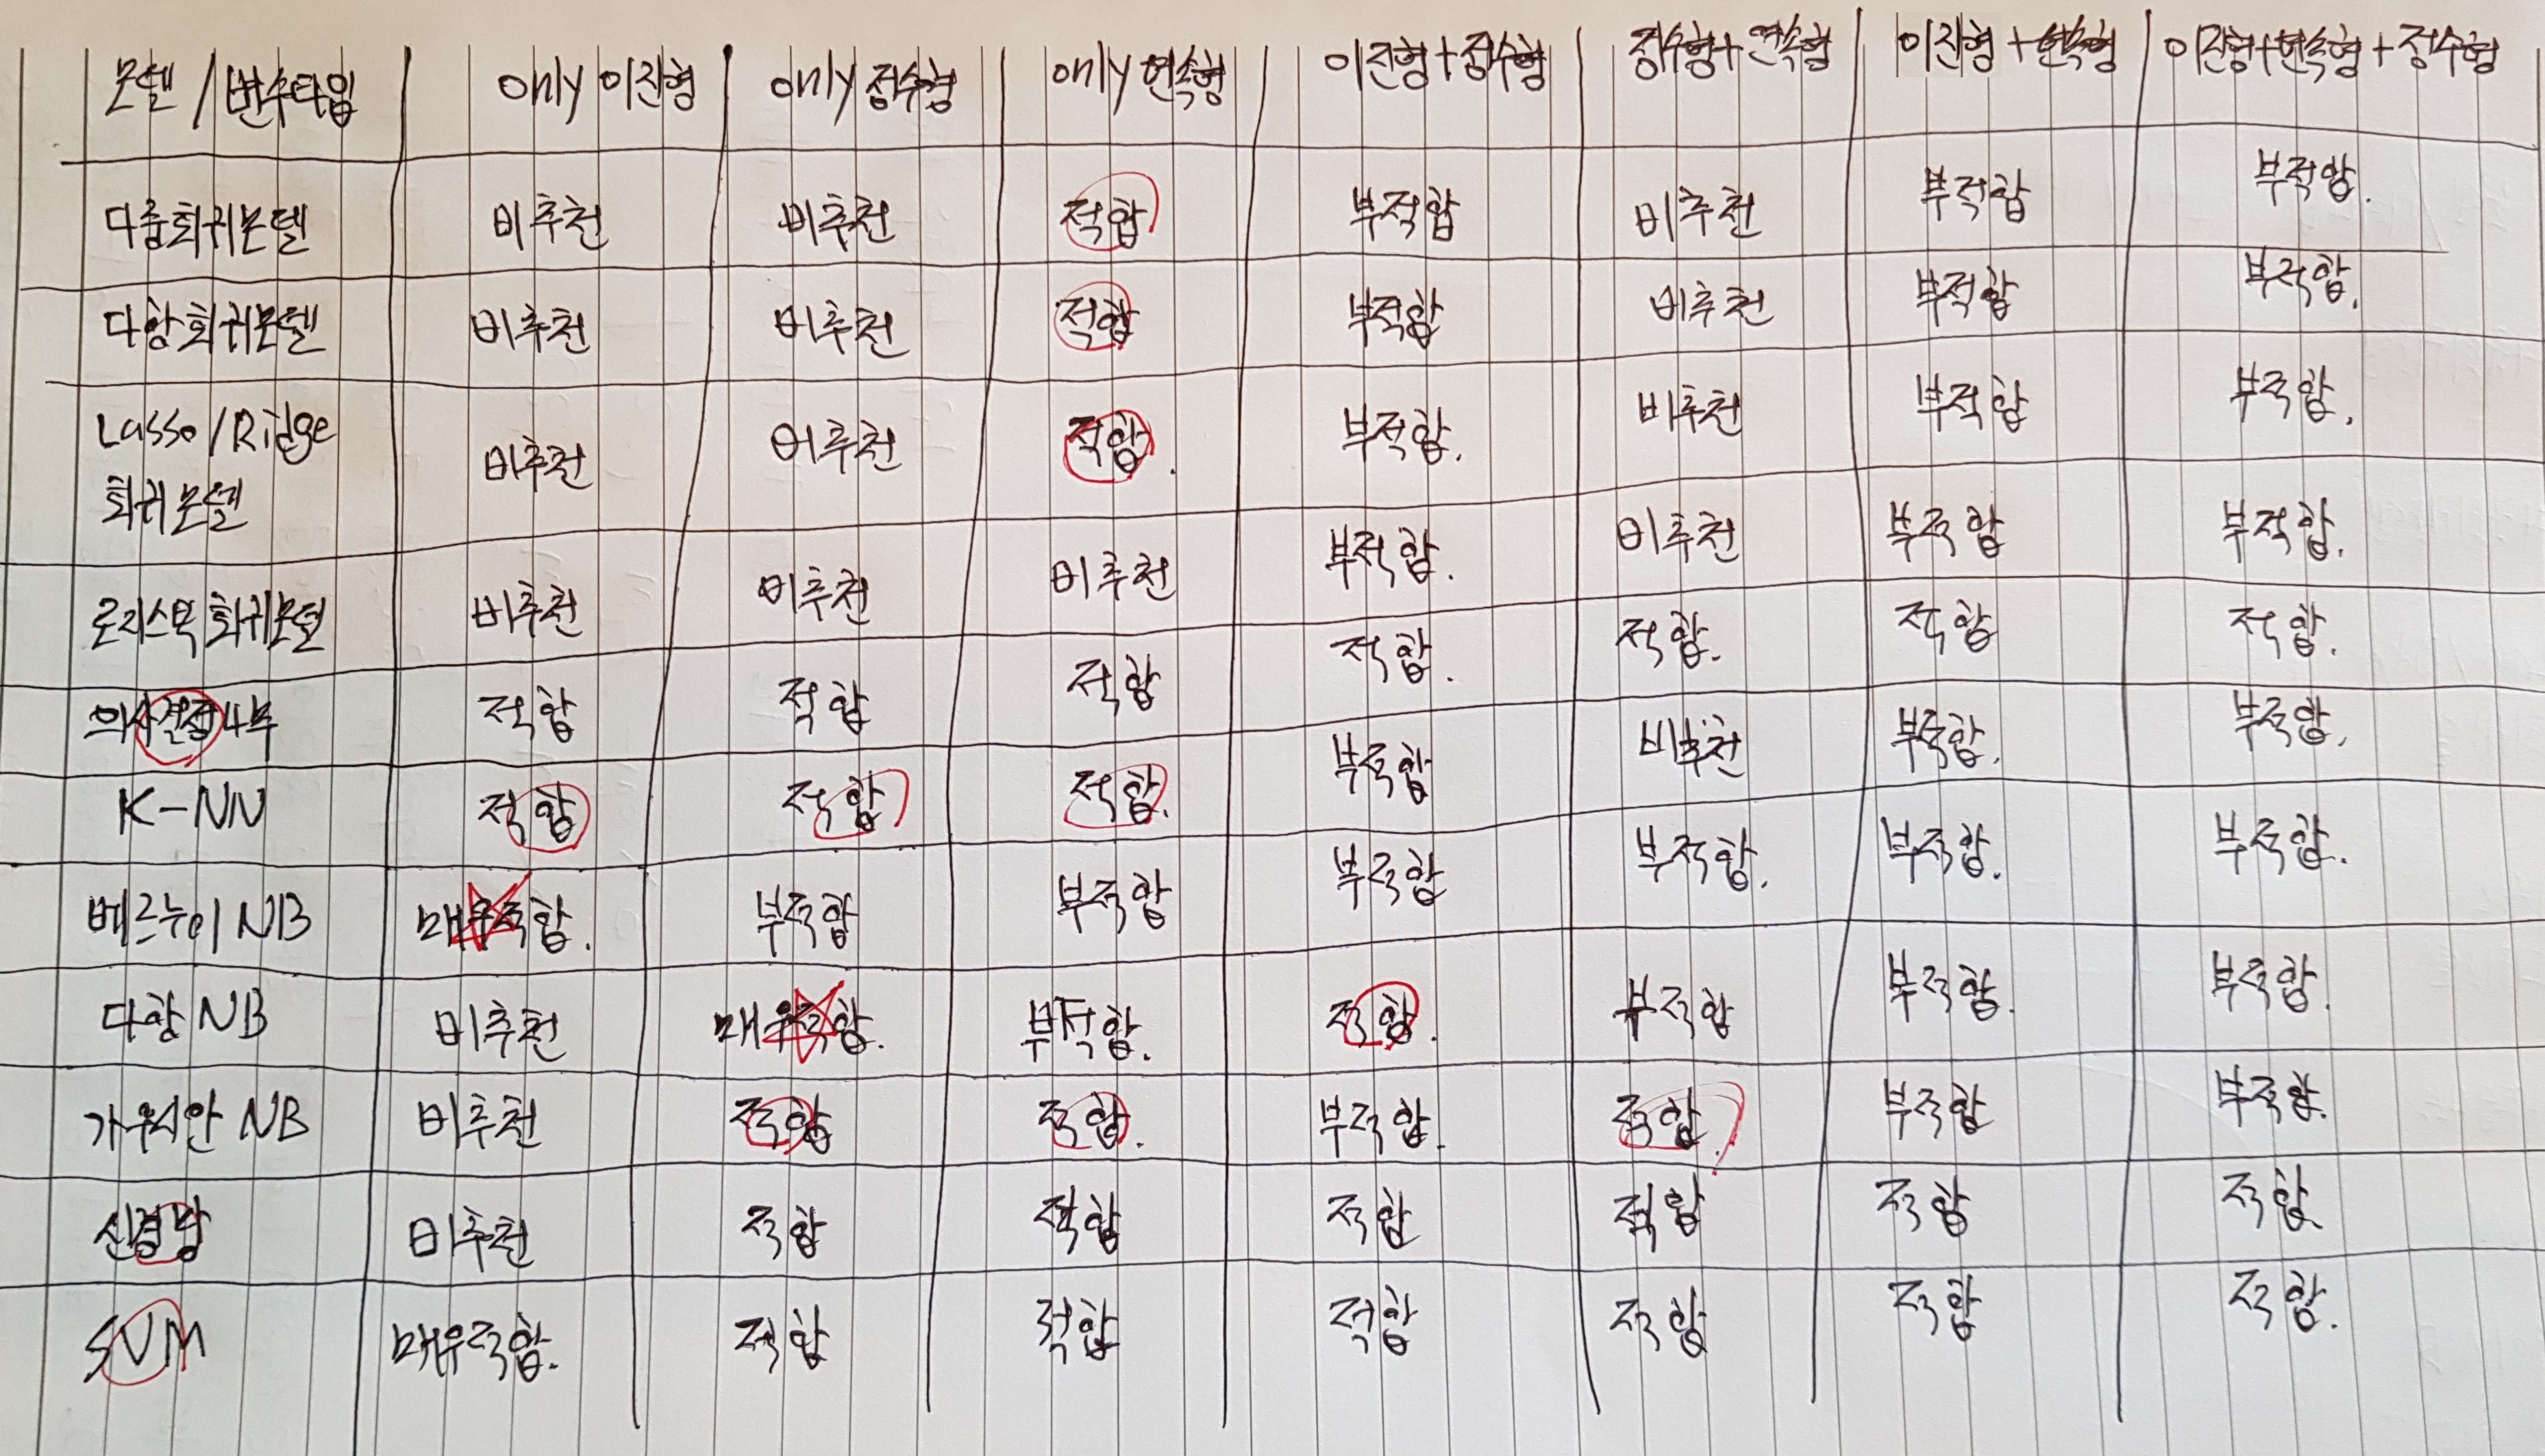 모델/변수타입 only 이진형 only 정수형 only 연속형 이진형+정수형 정수형+연속형 이진형+연속형 이진형+연속형+정수형
다중회귀모델 비추천 비추천 적합 부적합 비추천 부적합 부적합.
다항회귀모델 비추천 비추천 적합 부적합 비추천 부적합 부적합.
Lasso/Ridge
회귀모델 비추천 비추천 적합. 부적합. 비추천 부적합 부적합.
로지스틱회귀모델 비추천 비추천 비추천 부적합. 비추천 부적합 부적합.
의사결정나무 적합 적합 적합 적합. 적합. 적합 적합.
K-NN 적합 적합 적합. 부적합 비추천 부적합. 부적합.
베르누이 NB 매우적합. 부적합 부적합 부적합 부적합. 부적합. 부적합.
다항 NB 비추천 매우적합. 부적합. 적합. 부적합 부적합. 부적합.
가우시안 NB 비추천 적합 적합. 부적합. 적합. 부적합 부적합.
신경망 비추천 적합 적합 적합 적합 적합 적합.
SVM 매우적합. 적합 적합 적합 적합 적합 적합.